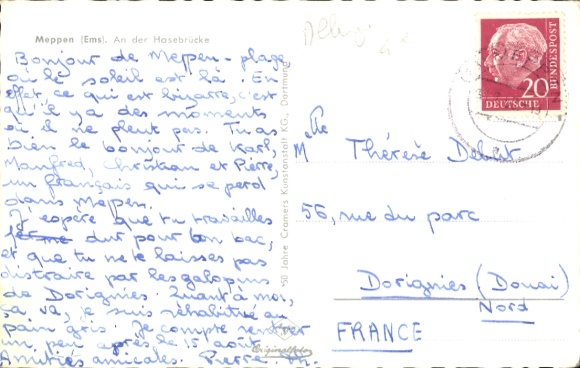 Meppen (Ems). An der Hasebrücke
Bonjour de Meppen - plage
où le soleil est là. En
effet ce qui est bizarre, c'est
qu'il y a des moments
où il ne pleut pas. Tu as
bien le bonjour de Karl,
Manfred, Christian et Pierre,
un français qui se perd
dans Meppen.
J'espère que tu travailles
ferme dur pour ton bac,
et que tu ne te laisses pas
distraire par les galopins
de Dorignies. Quant à moi,
ça va, je suis réhabitué au
pain gris. Je compte rentrer
un peu après le 15 août.
Amitiés amicales. Pierre.
50 Jahre Cramers Kunstanstalt KG., Dortmund
Originalfoto
20
DEUTSCHE
BUNDESPOST
Melle Thérèse
56, rue du parc
Dorignies (Douai)
Nord
FRANCE